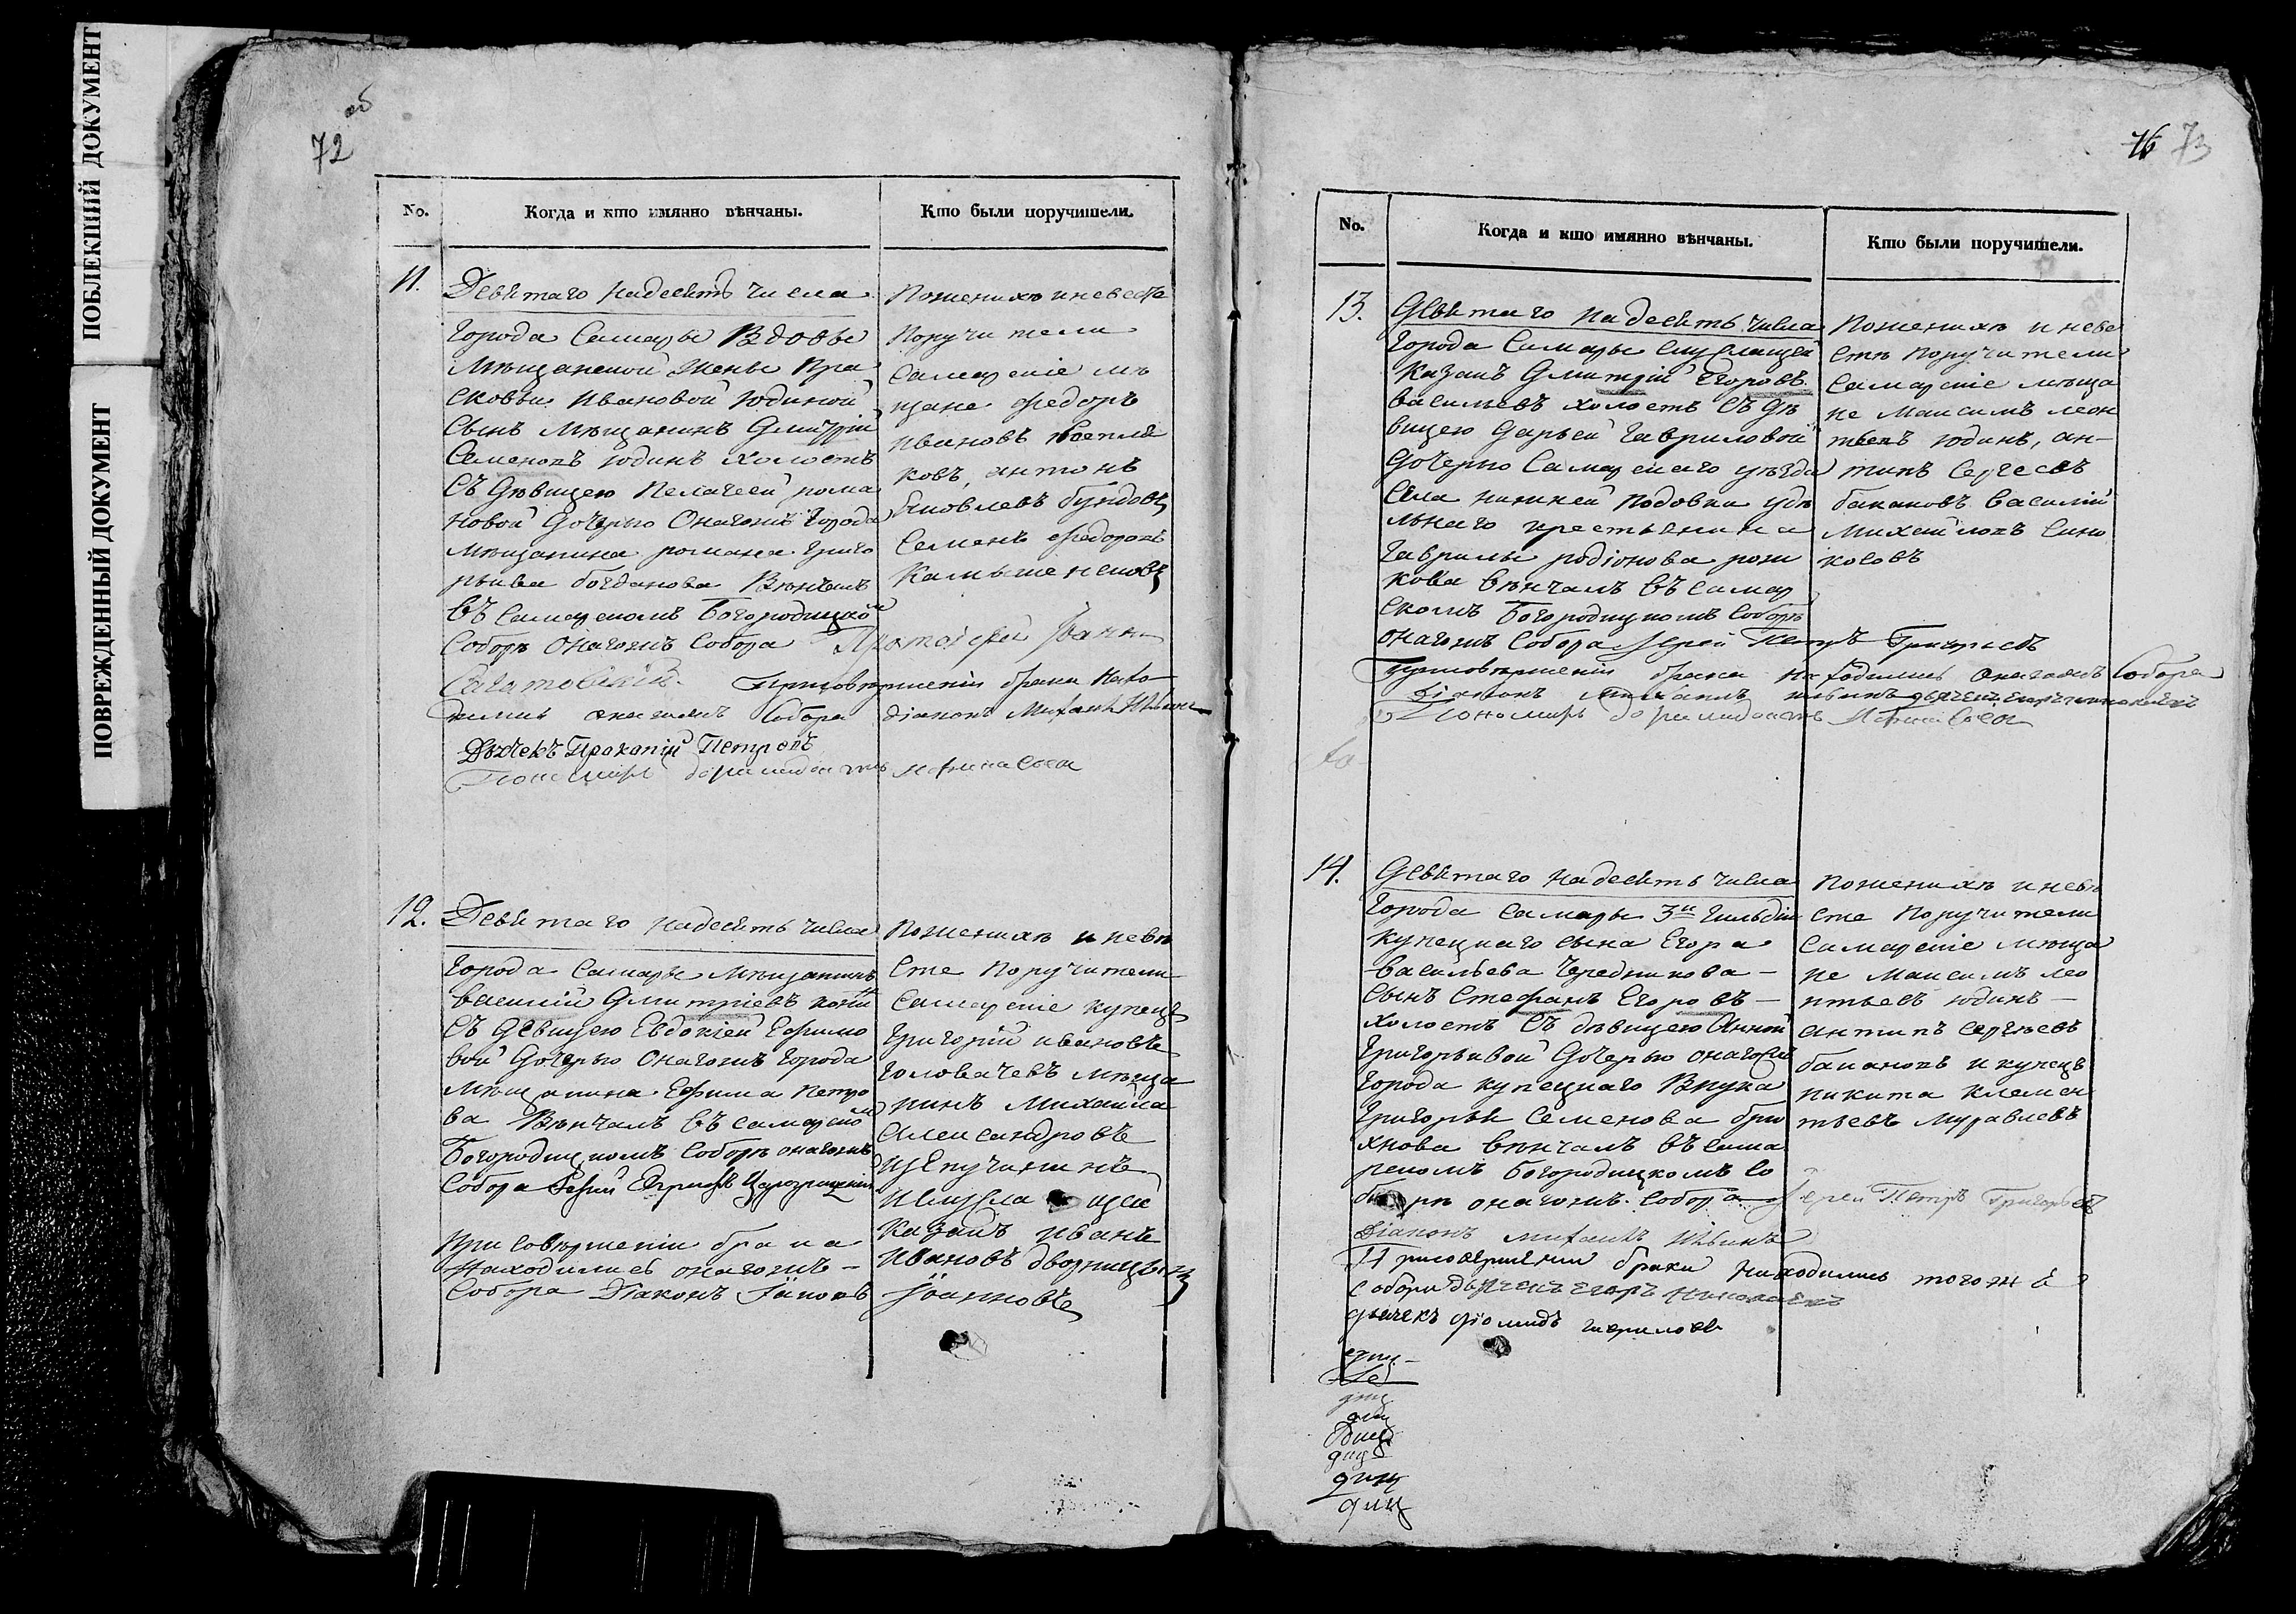 ПОБЛЕКШИЙ ДОКУМЕНТ
ПОВРЕЖДЕННЫЙ ДОКУМЕНТ
об
72
No. Когда и кто имянно вѣнчаны. Кто были поручители.
11. Девятаго надесять числа
города Самары Вдовы
мѣщанской жены Пра
сковьи Ивановой Юдиной
сынъ мѣщанинъ Дмитрій
Семеновъ Юдинъ холостъ
съ дѣвицею Пелагеей рома
новой дочерью онагожъ города
мѣщанина романа григо
рьива богданова Вѣнчалъ
въ Самарскомъ Богородицкомъ
Соборѣ онагожъ Собора Протоіерей Іоаннъ
При совершеніи брака нахо
дились онагожъ Собора діаконъ Михаилъ Ильинъ
Дьячекъ Прокопій Петровъ
Пономарь
По женихѣ и невестѣ
Поручители
Самарскіе мѣ
щане федоръ
ивановъ
ковъ, антонъ
яковлевъ бундовъ
Семенъ федоровъ
12. Девятаго надесять числа
города Самары мѣщанинъ
василій Дмитріевъ
съ девицею Евдокіей Ефимо
вой дочерью онагожъ города
мѣщанина Ефима Петро
ва Вѣнчалъ въ самарском
Богородицкомъ Соборѣ онагожъ
Собора Іерей
при совершеніи брака
находились онагожъ
Собора Діаконъ Іаковъ Іоанновъ
По женихѣ и невѣ
сте Поручители
Самарскіе купецъ
григорій ивановъ
головачевъ мѣща
нинъ Михаила
Александровъ
щепучининъ
и служащей
казакъ иванъ
ивановъ дворницынъ
76 73
No. Когда и кто имянно вѣнчаны. Кто были поручители.
13. Девятаго надесять числа
города Самары служащей
казакъ Дмитрій Егоровъ
васильевъ холостъ съ дѣ
вицею Дарьей гавриловой
дочерью Самарскаго уѣзда
села нижней подовки удѣ
льнаго крестьянина
гаврилы родіонова рож
кова вѣнчалъ въ самар
скомъ Богородицкомъ Соборѣ
онагожъ Собора Іерей Петръ Григорьевъ
При совершеніи брака находились онагожъ Собора
Діаконъ Михаилъ Ильинъ дьячекъ Егоръ
Пономарь
По женихѣ и неве
стѣ Поручители
Самарскіе мѣща
не Максимъ леон
тьевъ юдинъ, ан-
типъ Сергеевъ
бакановъ василій
михайловъ Сино
косовъ
14. Девятаго надесять числа
города самары 3й гильдіи
купецкаго сына Егора
васильева Чередникова -
сынъ Стефанъ Егоровъ -
холостъ съ дѣвицею Анной
григорьивой дочерью онагожъ
города купецкаго внука
григорья Семенова брю
хнова вѣнчалъ въ сама
рском Богородицкомъ Со
борѣ онагожъ Собора Іерей Петръ Григорьевъ
Діаконъ михаилъ Ильинъ
При совершеніи браки находились тогожъ
собора дьячекъ Егоръ
дьячекъ гавриловъ
По женихѣ и невѣ
сте Поручители
Самарскіе мѣща
не Максимъ лео
нтьевъ юдинъ -
антипъ сергѣевъ
бакановъ и купецъ
никита клемен
тьевъ муравлевъ